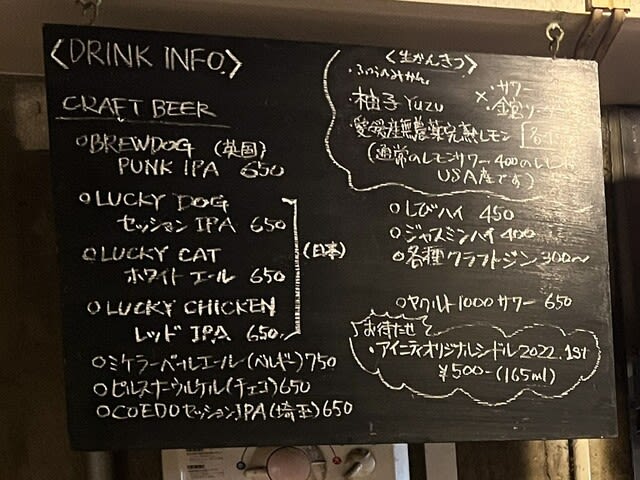 〈DRINK INFO〉
CRAFT BEER
○BREWDOG (英国)
PUNK IPA 650
○LUCKY DOG
セッション IPA 650
○LUCKY CAT
ホワイトエール 650
○LUCKY CHICKEN
レッド IPA 650
(日本)
○ミケラーペールエール(ベルギー)750
○ピルスナーウルケル(チェコ)650
○COEDOセッションIPA(埼玉)650
〈生かんきつ〉
みかん
・柚子 YUZU
・愛媛産無農薬完熟レモン
×・サワー
(通常のレモンサワー400の
USA産です)
○しびハイ 450
○ジャスミンハイ 400
○各種クラフトジン 300〜
○ヤクルト1000サワー 650
お待たせ
・アイニティオリジナルシードル2022.1st
¥500-(165ml)